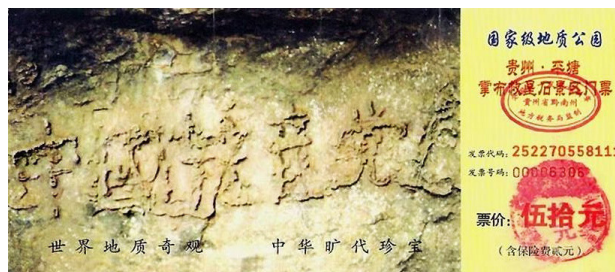 中國共產党亡
世界地质奇观 中华旷代珍宝
国家级地质公园
贵州·平塘
掌布救星石景区门票
贵州省黔南州
地方税务局监制
发票代码：25227055811
发票号码：00006306
票价：伍拾元
（含保险费贰元）